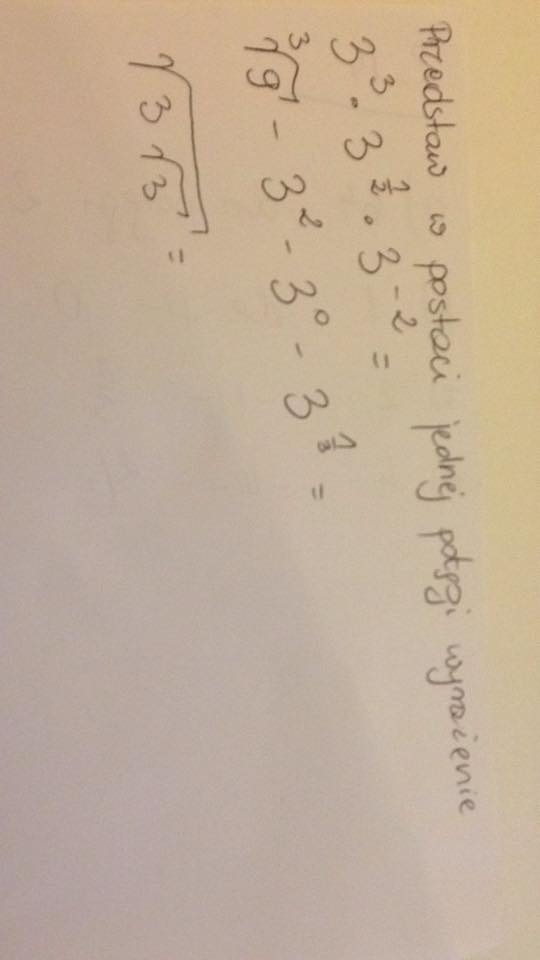 Przedstaw w postaci jednej potęgi wyrażenie
3³ · 3^½ · 3⁻² =
³√9 - 3² - 3⁰ - 3^⅓ =
√(3√3) =